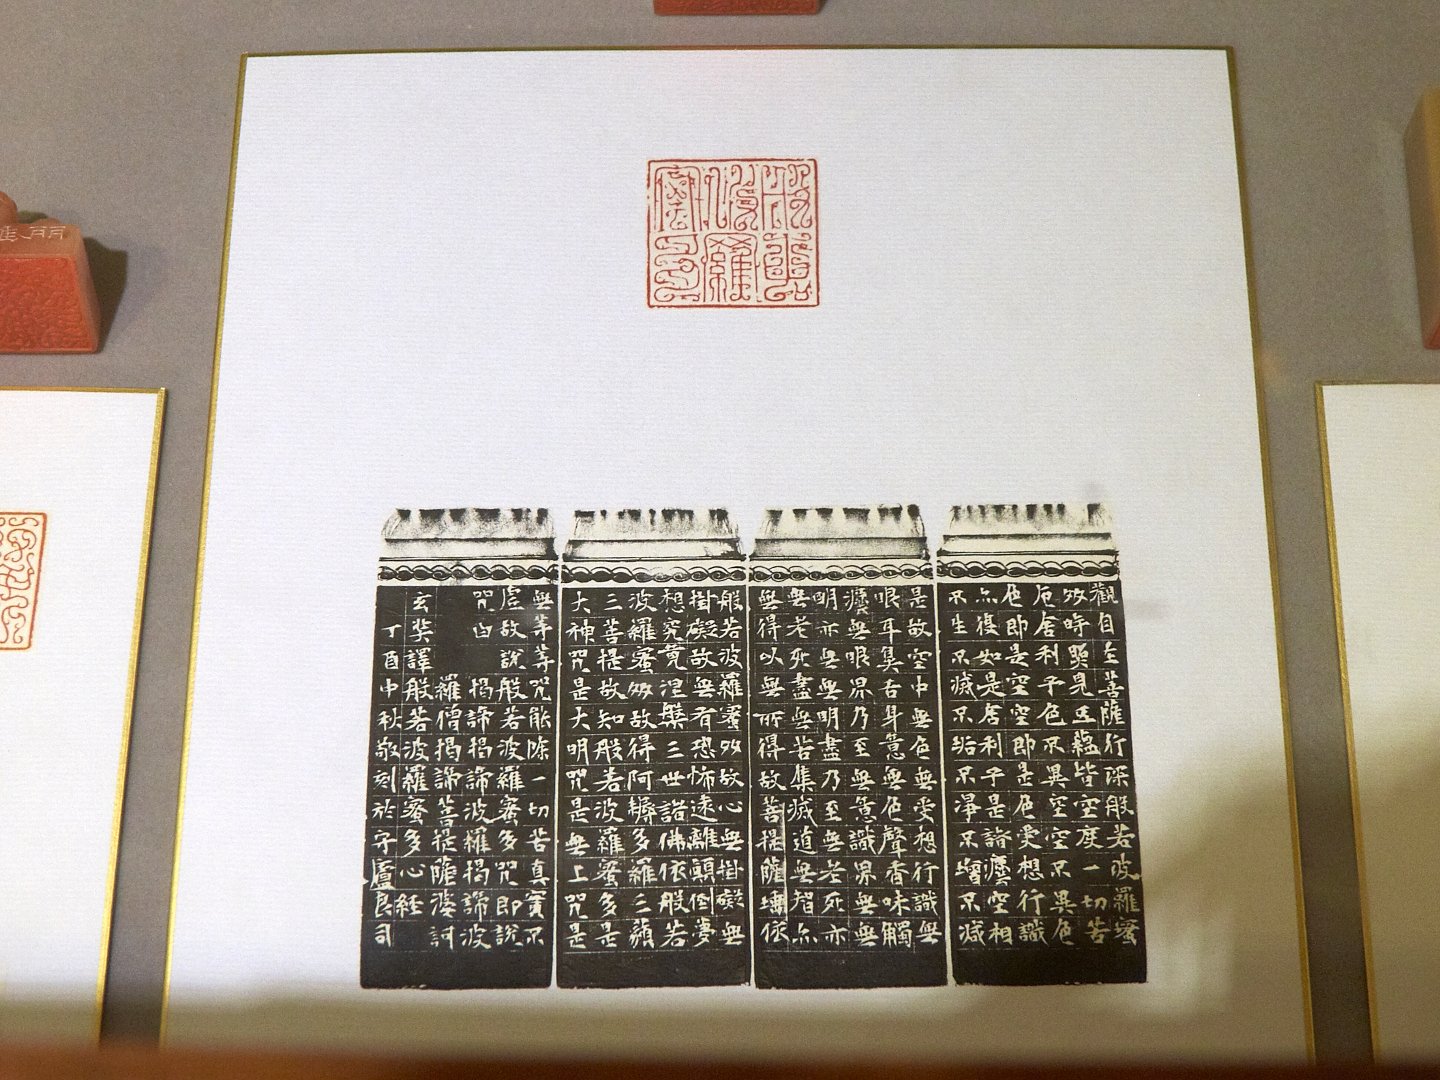 般若
波羅
蜜多
觀自在菩薩行深般若波羅蜜
多時照見五蘊皆空度一切苦
厄舍利子色不異空空不異色
色即是空空即是色受想行識
亦復如是舍利子是諸灋空相
不生不滅不垢不淨不增不減
是故空中無色無受想行識無
眼耳鼻舌身意無色聲香味觸
灋無眼界乃至無意識界無無
明亦無無明盡乃至無老死亦
無老死盡無苦集滅道無智亦
無得以無所得故菩提薩埵依
般若波羅蜜多故心無掛礙無
掛礙故無有恐怖遠離顛倒夢
想究竟涅槃三世諸佛依般若
波羅蜜多故得阿耨多羅三藐
三菩提故知般若波羅蜜多是
大神咒是大明咒是無上咒是
無等等咒能除一切苦真實不
虛故說般若波羅蜜多咒即說
咒曰 揭諦揭諦波羅揭諦波
羅僧揭諦菩提薩婆訶
玄奘譯般若波羅蜜多心經
丁酉中秋敬刻於守廬良司